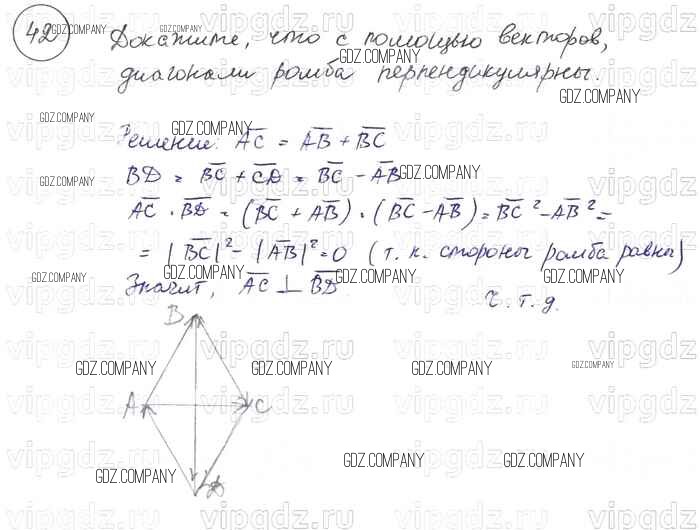 42 Докажите, что с помощью векторов,
диагонали ромба перпендикулярны.
Решение: AC = AB + BC
BD = BC + CD = BC - AB
AC · BD = (BC + AB) · (BC - AB) = BC² - AB² =
= |BC|² - |AB|² = 0 (т. к. стороны ромба равны)
Значит, AC ⊥ BD
ч. т. д.
B
A C
D
GDZ.COMPANY
vipgdz.ru